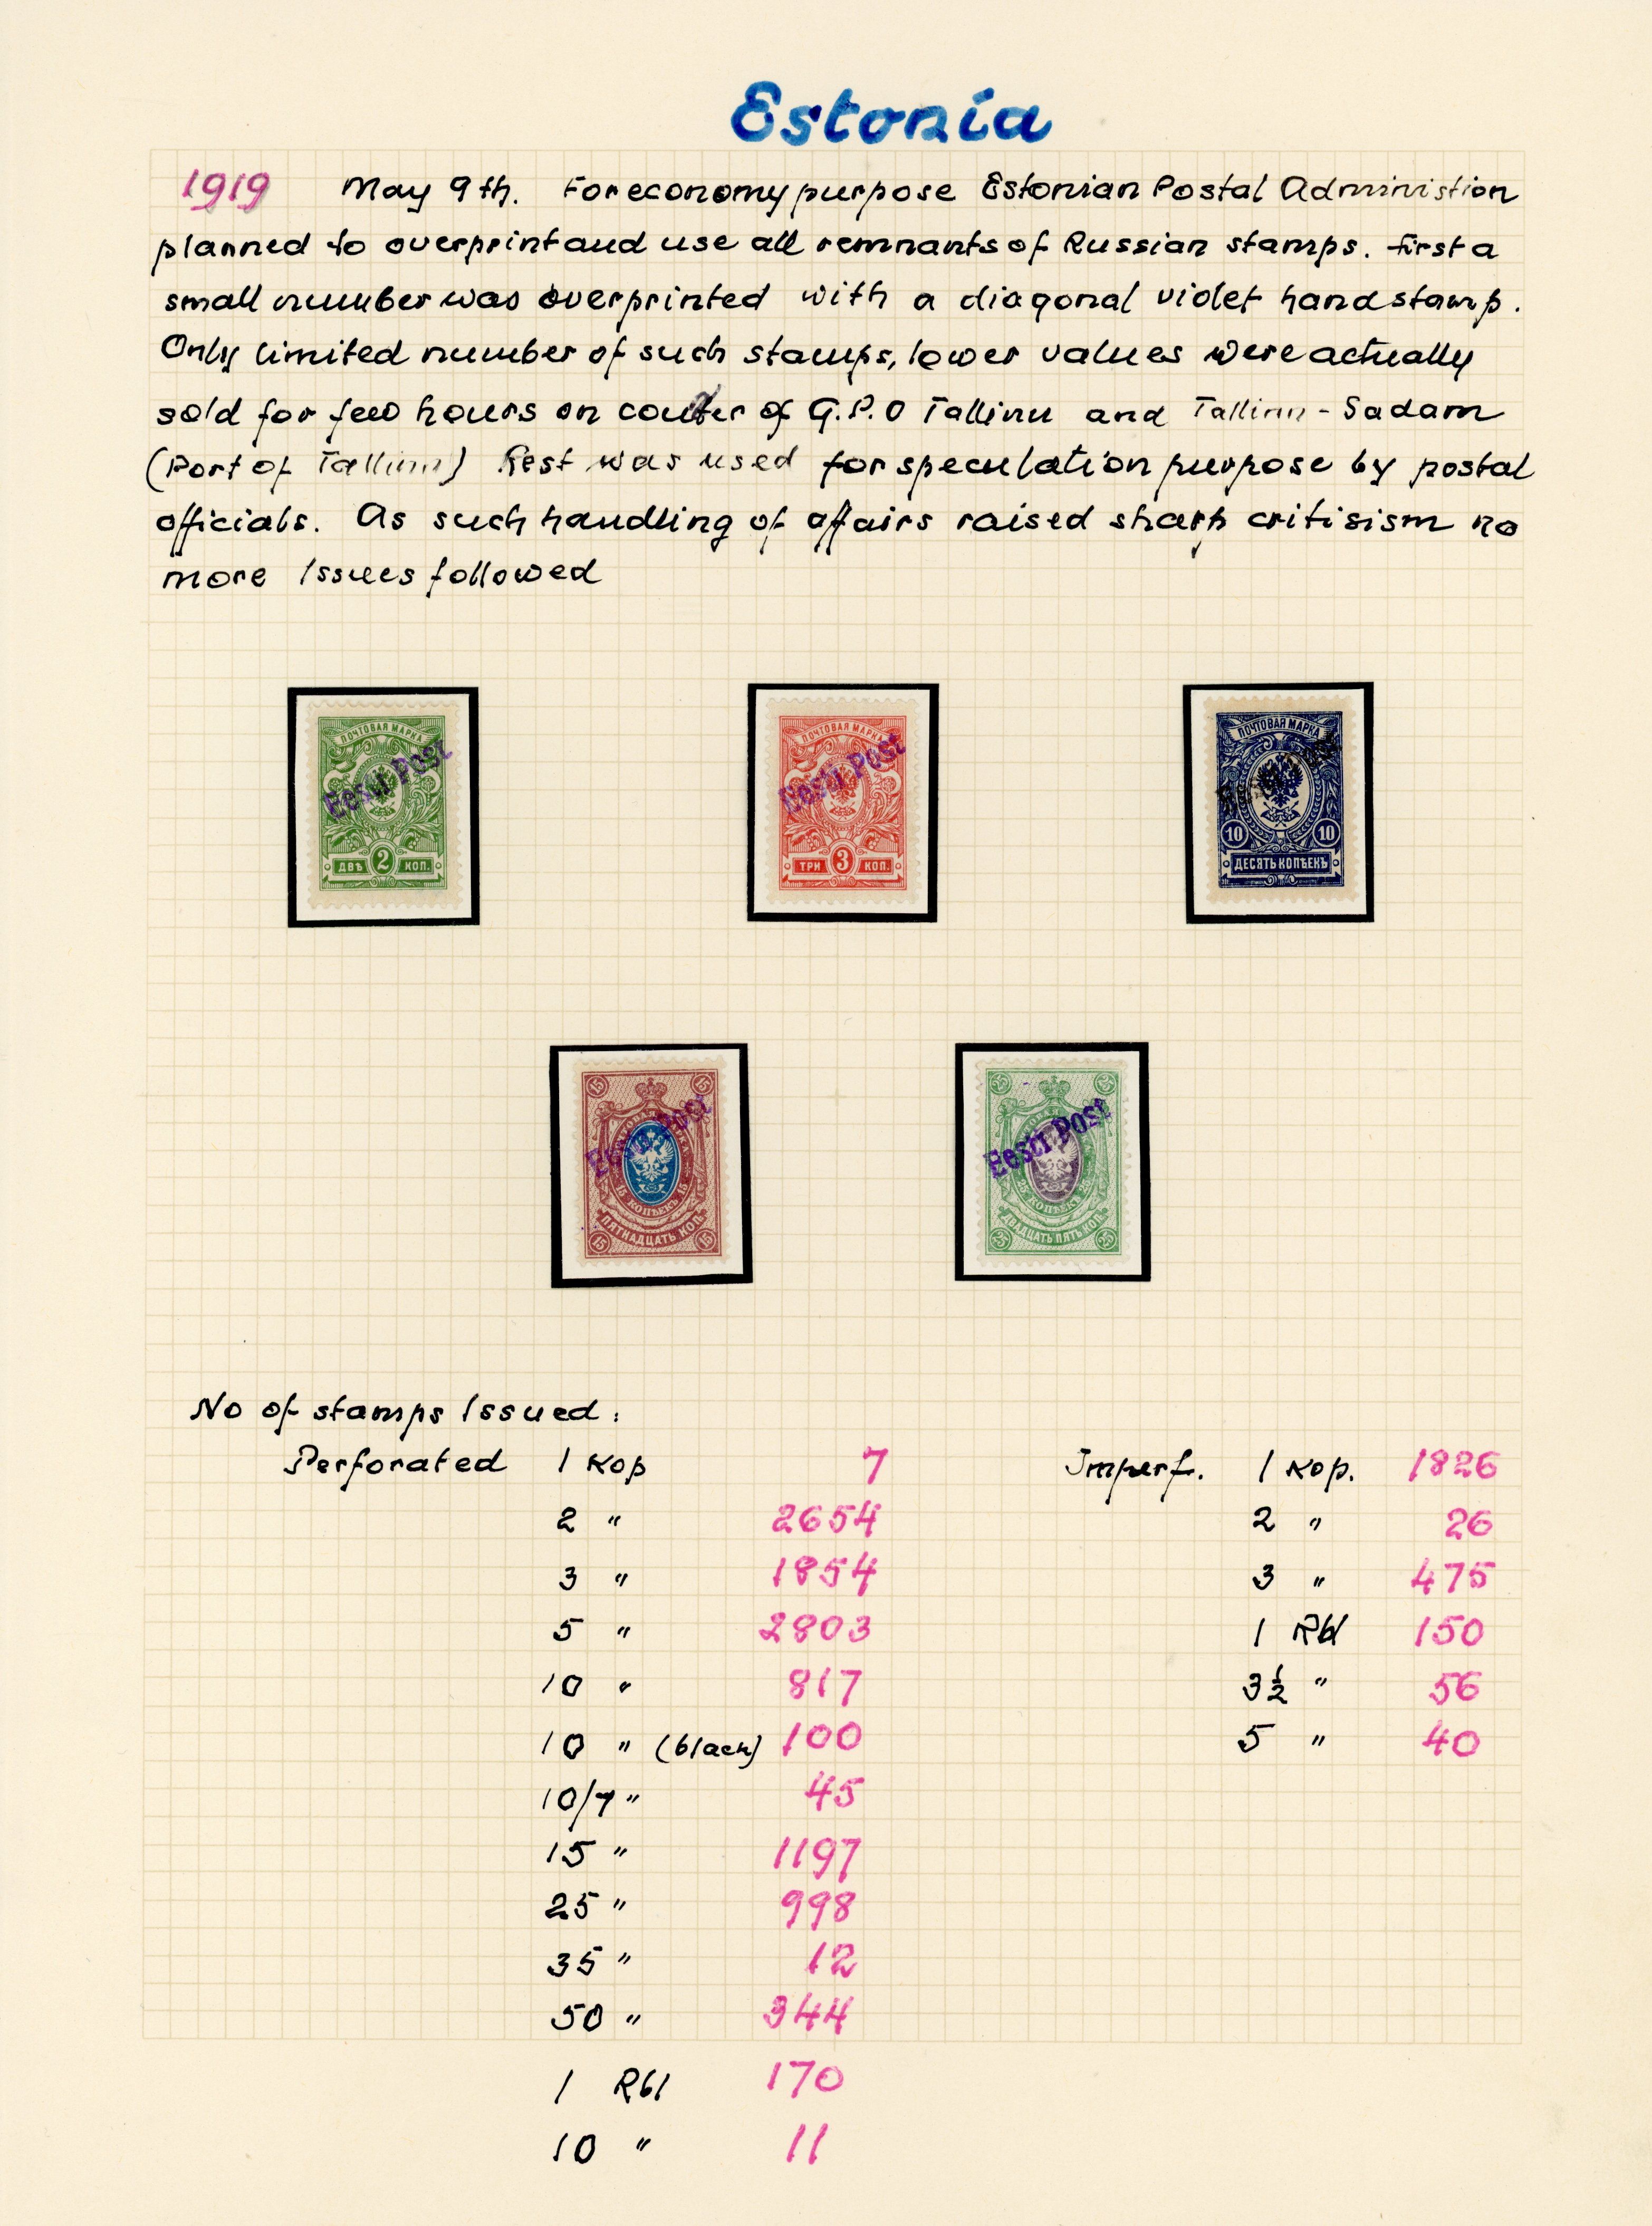 Estonia
1919 May 9th. For economy purpose Estonian Postal Administion
planned to overprint and use all remnants of Russian stamps. first a
small number was overprinted with a diagonal violet handstamp.
Only limited number of such stamps, lower values were actually
sold for few hours on couter of G.P.O Tallinn and Tallinn - Sadam
(Port of Tallinn) Rest was used for speculation purpose by postal
officials. As such handling of affairs raised sharp critisism no
more Issues followed
ПОЧТОВАЯ МАРКА
Eesti Post
ДВѢ 2 КОП.
ПОЧТОВАЯ МАРКА
Eesti Post
ТРИ 3 КОП.
ПОЧТОВАЯ МАРКА
10 10
ДЕСЯТЬ КОПѢЕКЪ
15 15
Eesti Post
15 КОПѢЕКЪ 15
ПЯТНАДЦАТЬ КОП.
15 15
25 25
Eesti Post
25 КОПѢЕКЪ 25
ДВАДЦАТЬ ПЯТЬ КОП.
25 25
No of stamps Issued:
Perforated 1 Kop 7 Imperf. 1 Kop. 1826
2 " 2654 2 " 26
3 " 1854 3 " 475
5 " 2803 1 Rbl 150
10 " 817 3½ " 56
10 " (black) 100 5 " 40
10/7 " 45
15 " 1197
25 " 998
35 " 12
50 " 344
1 Rbl 170
10 " 11